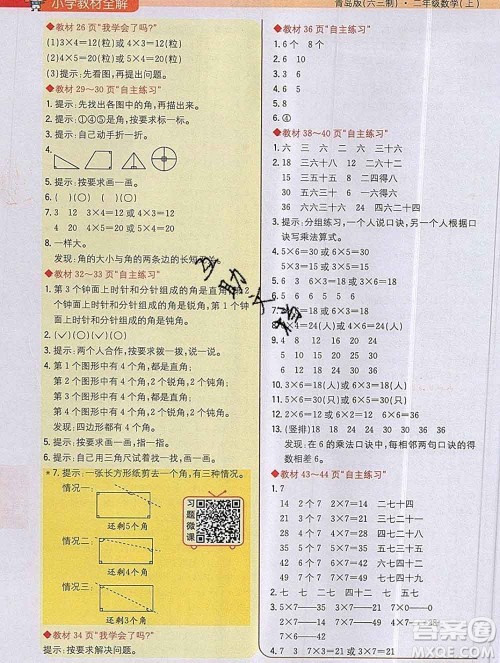 小学教材全解
青岛版(六三制)·二年级数学(上)
◆教材 26 页“我学会了吗?”
(1)3×4=12(粒)或 4×3=12(粒)
(2)4×5=20(粒)或 5×4=20(粒)
(3)提示:先看图,再提出问题。
◆教材 29～30 页“自主练习”
1. 提示:先找出各图中的角,再描出来。
2. 提示:①④⑤是角,按要求标一标。
3. 提示:自己动手折一折。
4.
5. 提示:按要求画一画。
6. ( ) ( ) (○) ( )
7. 3 12 3×4=12 或 4×3=12
8. 一样大。
发现:角的大小与角的两条边的长短
◆教材 32～33 页“自主练习”
1. 第 3 个钟面上时针和分针组成的角是直角,第 2
个钟面上时针和分针组成的角是锐角,第 1 个钟
面上时针和分针组成的角是钝角。
2. (✓) ( ) ( ) (✓)
3. 提示:两个人合作,按要求拨一拨,说一说。
4. 第 1 个图形中有 4 个角,都是直角;
第 2 个图形中有 4 个角,2 个锐角,2 个钝角;
第 3 个图形中有 4 个角,都是直角;
第 4 个图形中有 4 个角,2 个锐角,2 个钝角。
发现:四边形都有 4 个角。
5. 提示:按要求指一指。
6. 提示:自己用三角尺试着找一找,拼一拼。
*7. 提示:一张长方形纸剪去一个角,有三种情况。
情况一:
还剩5个角
情况二:
还剩4个角
情况三:
还剩3个角
习题微课
◆教材 34 页“我学会了吗?”
提示:按要求解决问题。
◆教材 36 页“自主练习”
1. 6 个 8 个
2. 6 10
3. 6 8
5. 8
6. ④
◆教材 38～40 页“自主练习”
1. 六 三 六 二 六 三十六
2. 18 三六十八 12 二六十二
24 四六二十四 48 六八四十八
30 五六三十 36 六六三十六
18 36 6 48 24 30 12
3. 提示:分组练习,一个人说口诀,另一个人根据口
诀写乘法算式。
4. 5×6=30(人)或 6×5=30(人)
5. 6×4=24(个)或 4×6=24(个)
6. 6×2=12(个)或 2×6=12(个)
7. 6×5=30(元)或 5×6=30(元)
8. 4×6=24(元)或 6×4=24(元)
9. 24 18 30 12 36
24 15 6 20 24
10. 3×6=18(人)或 6×3=18(人)
11. 5×6=30(只)或 6×5=30(只)
12. (竖排) 18 24 30 36
发现:在 6 的乘法口诀中,每相邻两句口诀的
得数相差 6。
◆教材 43～44 页“自主练习”
1. 7
14 2 个 7 2×7=14 二七十四
21 3 个 7 3×7=21 三七二十一
28 4 个 7 4×7=28 四七二十八
35 5 个 7 5×7=35 五七三十五
42 6 个 7 6×7=42 六七四十二
2. 14 21 28 35 42 49
4. 7 3 5 4 6